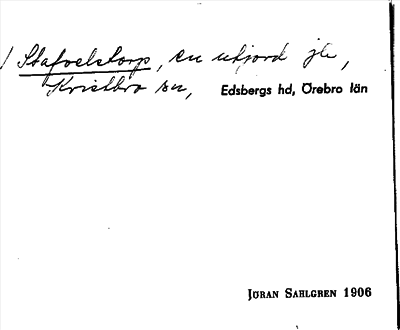 Stafvelstorp, en utjord
Kristbro sn, Edsbergs hd, Örebro län
JÖRAN SAHLGREN 1906